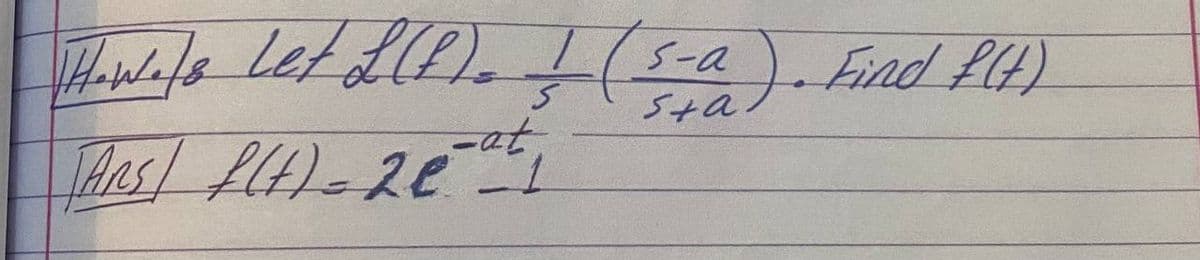 H.W./: Let ℒ(f) = 1/s ( s-a / s+a ). Find f(t)
Ans/ f(t) = 2e^{-at} - 1